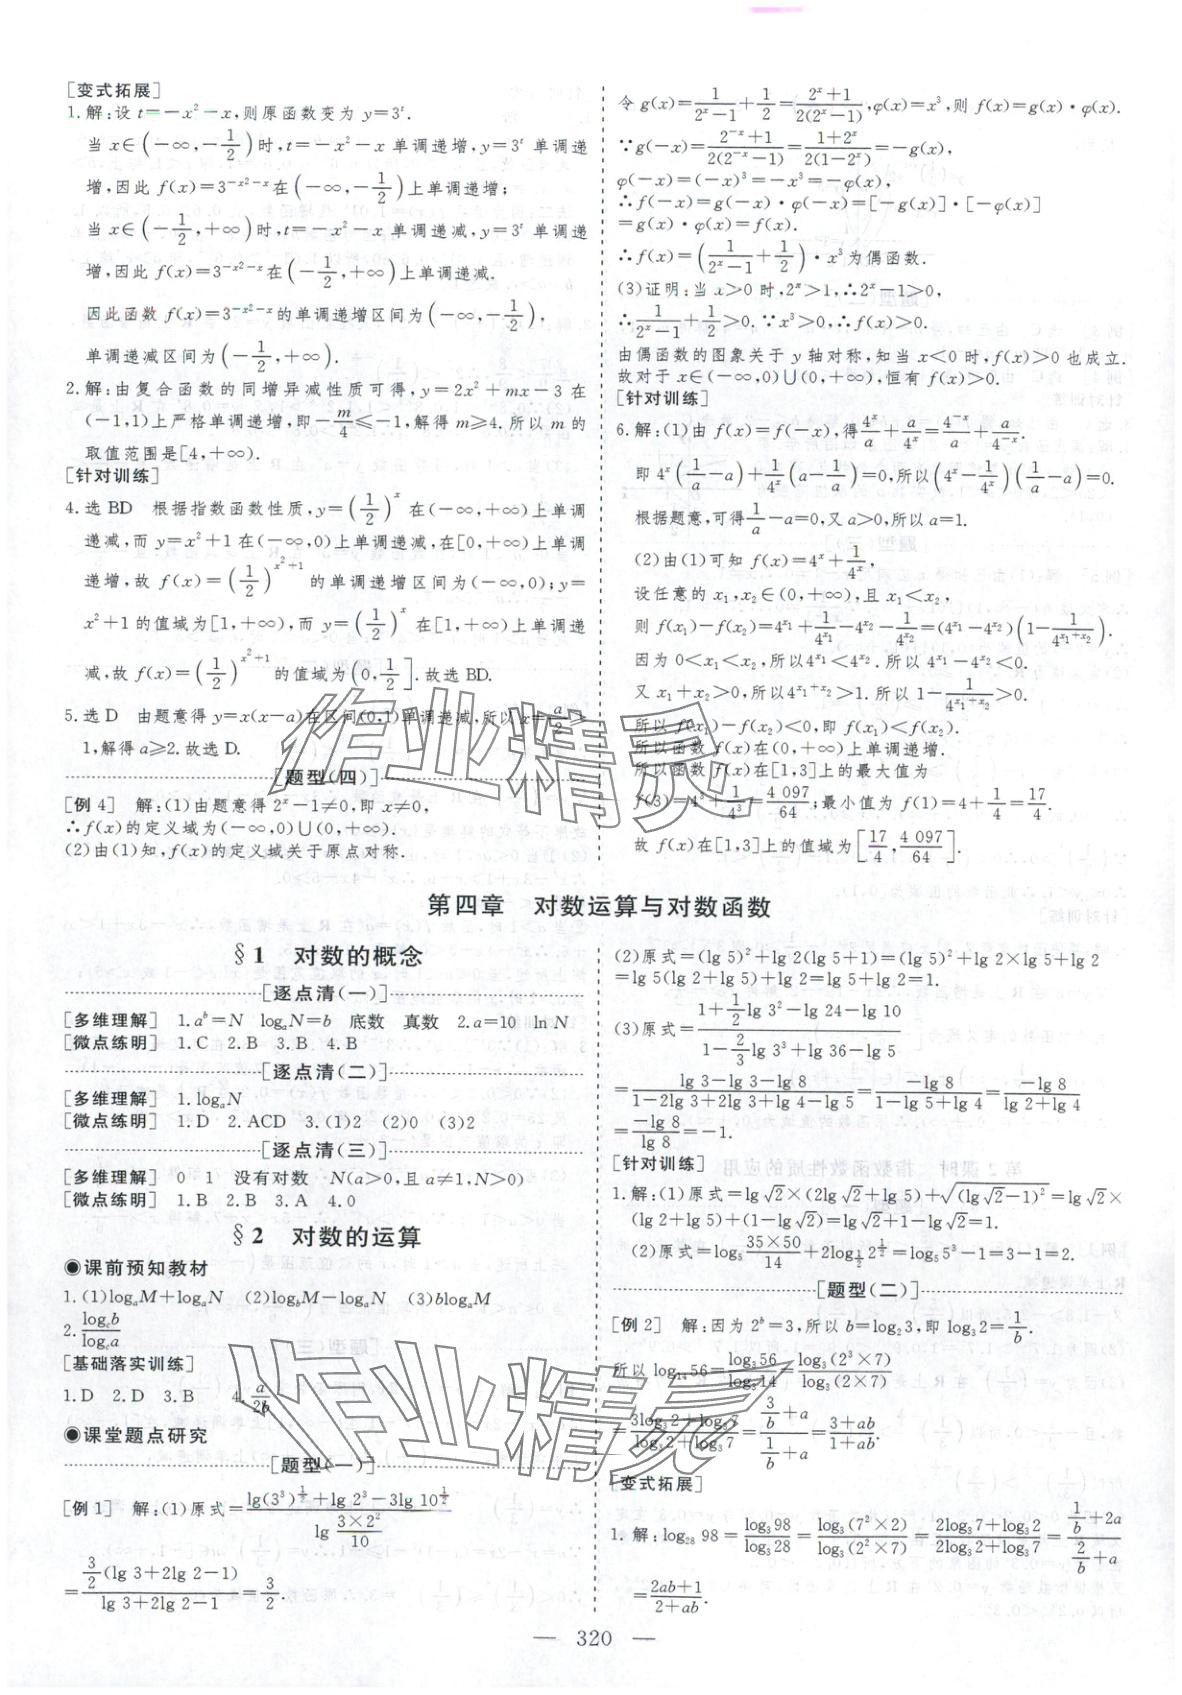 [变式拓展]
1.解:设 t=-x²-x,则原函数变为 y=3^t.
当 x∈(-∞,-1/2)时,t=-x²-x 单调递增,y=3^t 单调递
增,因此 f(x)=3^(-x²-x)在(-∞,-1/2)上单调递增;
当 x∈(-1/2,+∞)时,t=-x²-x 单调递减,y=3^t 单调递
增,因此 f(x)=3^(-x²-x)在(-1/2,+∞)上单调递减.
因此函数 f(x)=3^(-x²-x)的单调递增区间为(-∞,-1/2),
单调递减区间为(-1/2,+∞).
2.解:由复合函数的同增异减性质可得,y=2x²+mx-3 在
(-1,1)上严格单调递增,即-m/4≤-1,解得 m≥4.所以 m 的
取值范围是[4,+∞).
[针对训练]
4.选 BD 根据指数函数性质,y=(1/2)^x 在(-∞,+∞)上单调
递减,而 y=x²+1 在(-∞,0)上单调递减,在[0,+∞)上单调
递增,故 f(x)=(1/2)^(x²+1)的单调递增区间为(-∞,0);y=
x²+1 的值域为[1,+∞),而 y=(1/2)^x 在[1,+∞)上单调递
减,故 f(x)=(1/2)^(x²+1)的值域为(0,1/2].故选 BD.
5.选 D 由题意得 y=x(x-a)在区间(0,1)单调递减,所以 x=a/2≥
1,解得 a≥2.故选 D.
[题型(四)]
[例 4] 解:(1)由题意得 2^x-1≠0,即 x≠0,
∴f(x)的定义域为(-∞,0)∪(0,+∞).
(2)由(1)知,f(x)的定义域关于原点对称.
令 g(x)=1/(2^x-1)+1/2=(2^x+1)/(2(2^x-1)),φ(x)=x³,则 f(x)=g(x)·φ(x).
∵g(-x)=(2^(-x)+1)/(2(2^(-x)-1))=(1+2^x)/(2(1-2^x))=-g(x),
φ(-x)=(-x)³=-x³=-φ(x),
∴f(-x)=g(-x)·φ(-x)=[-g(x)]·[-φ(x)]
=g(x)·φ(x)=f(x).
∴f(x)=(1/(2^x-1)+1/2)·x³为偶函数.
(3)证明:当 x>0 时,2^x>1,∴2^x-1>0,
∴1/(2^x-1)+1/2>0.∵x³>0,∴f(x)>0.
由偶函数的图象关于 y 轴对称,知当 x<0 时,f(x)>0 也成立.
故对于 x∈(-∞,0)∪(0,+∞),恒有 f(x)>0.
[针对训练]
6.解:(1)由 f(x)=f(-x),得4^x/a+a/4^x=4^(-x)/a+a/4^(-x).
即 4^x(1/a-a)+1/4^x(a-1/a)=0,所以(4^x-1/4^x)(1/a-a)=0.
根据题意,可得1/a-a=0,又 a>0,所以 a=1.
(2)由(1)可知 f(x)=4^x+1/4^x,
设任意的 x₁,x₂∈(0,+∞),且 x₁<x₂,
则 f(x₁)-f(x₂)=4^x₁+1/4^x₁-4^x₂-1/4^x₂=(4^x₁-4^x₂)(1-1/4^(x₁+x₂)).
因为 0<x₁<x₂,所以4^x₁<4^x₂.所以 4^x₁-4^x₂<0.
又 x₁+x₂>0,所以4^(x₁+x₂)>1.所以 1-1/4^(x₁+x₂)>0.
所以 f(x₁)-f(x₂)<0,即 f(x₁)<f(x₂).
所以函数 f(x)在(0,+∞)上单调递增.
所以函数 f(x)在[1,3]上的最大值为
f(3)=4³+1/4³=4 097/64;最小值为 f(1)=4+1/4=17/4.
故 f(x)在[1,3]上的值域为[17/4,4 097/64].
第四章 对数运算与对数函数
§1 对数的概念
[逐点清(一)]
[多维理解] 1.a^b=N log_a N=b 底数 真数 2.a=10 ln N
[微点练明] 1.C 2.B 3.B 4.B
[逐点清(二)]
[多维理解] 1.log_a N
[微点练明] 1.D 2.ACD 3.(1)2 (2)0 (3)2
[逐点清(三)]
[多维理解] 0 1 没有对数 N(a>0,且 a≠1,N>0)
[微点练明] 1.B 2.B 3.A 4.0
§2 对数的运算
◉课前预知教材
1.(1)log_a M+log_a N (2)log_b M-log_a N (3)blog_a M
2.log_c b/log_c a
[基础落实训练]
1.D 2.D 3.B 4.a/2b
◉课堂题点研究
[题型(一)]
[例 1] 解:(1)原式=(lg(3³)^(1/2)+lg 2³-3lg 10^(1/2))/(lg (3×2²)/10)
=(3/2(lg 3+2lg 2-1))/(lg 3+2lg 2-1)=3/2.
(2)原式=(lg 5)²+lg 2(lg 5+1)=(lg 5)²+lg 2×lg 5+lg 2
=lg 5(lg 2+lg 5)+lg 2=lg 5+lg 2=1.
(3)原式=(1+1/2lg 3²-lg 24-lg 10)/(1-2/3lg 3³+lg 36-lg 5)
=(lg 3-lg 3-lg 8)/(1-2lg 3+2lg 3+lg 4-lg 5)=(-lg 8)/(1-lg 5+lg 4)=(-lg 8)/(lg 2+lg 4)
=(-lg 8)/(lg 8)=-1.
[针对训练]
1.解:(1)原式=lg√2×(2lg√2+lg 5)+√((lg√2-1)²)=lg√2×
(lg 2+lg 5)+(1-lg√2)=lg√2+1-lg√2=1.
(2)原式=log₅(35×50)/14+2log_(1/2) 2^(1/2)=log₅5³-1=3-1=2.
[题型(二)]
[例 2] 解:因为 2^b=3,所以 b=log₂3,即 log₃2=1/b.
所以 log₁₄56=log₃56/log₃14=log₃(2³×7)/log₃(2×7)
=(3log₃2+log₃7)/(log₃2+log₃7)=(3/b+a)/(1/b+a)=(3+ab)/(1+ab).
[变式拓展]
1.解:log₂₈98=log₃98/log₃28=log₃(7²×2)/log₃(2²×7)=(2log₃7+log₃2)/(2log₃2+log₃7)=(1/b+2a)/(2/b+a)
=(2ab+1)/(2+ab).
— 320 —
作业精灵
作业精灵